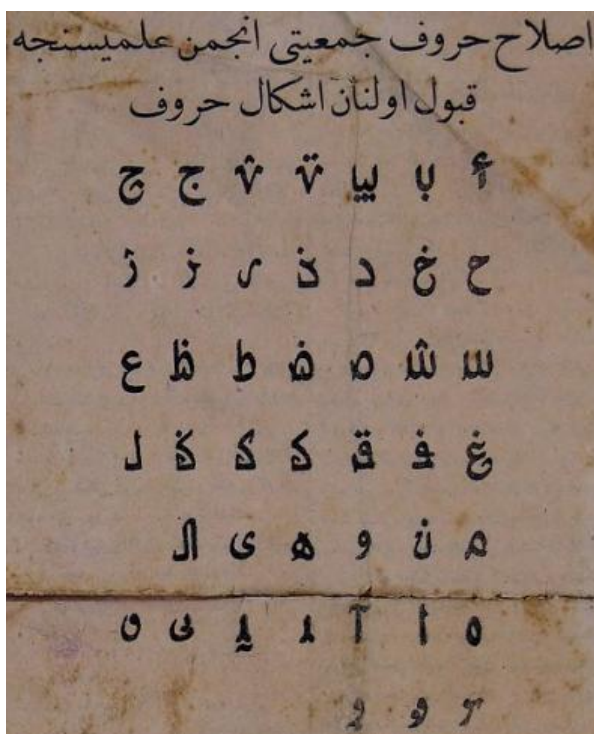 اصلاح حروف جمعیتی انجمن علمیسنجه
قبول اولنان اشكال حروف
أ ب پ ت ث ج چ
ح خ د ذ ر ز ژ
س ش ص ض ط ظ ع
غ ف ق ک ل
م ن و ه ی ال
ه ا آ